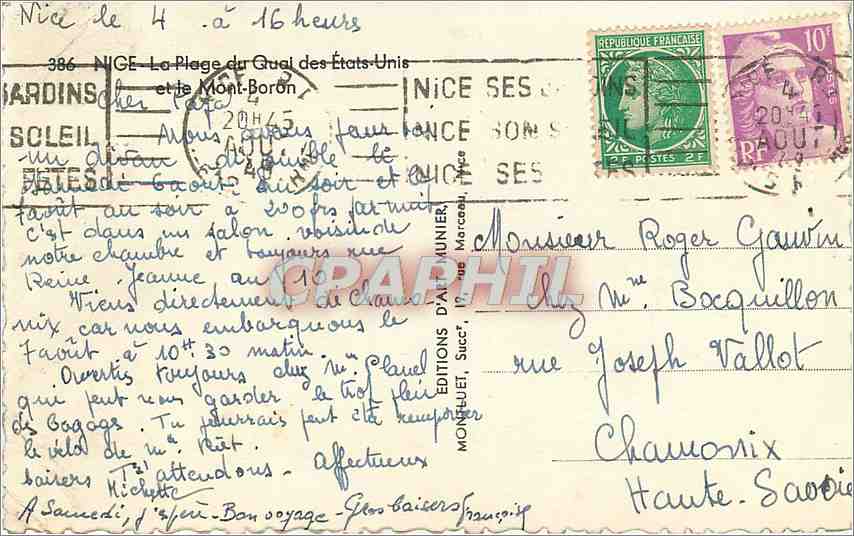 Nice le 4 . à 16 heures
386 NICE - La Plage du Quai des États-Unis
et le Mont-Boron
JARDINS
SOLEIL
FETES
NICE
4
20H45
AOUT
NICE SES
NICE SON S
NICE SES
RÉPUBLIQUE FRANÇAISE
2F POSTES 2F
10F
POSTES
RF
4
20H45
AOUT
Cher Papa
Nous avons pour toi
un divan disponible le
6 août au soir et le
7 août au soir à 200 frs par nuit
c'est dans un salon voisin de
notre chambre et toujours rue
Reine Jeanne au 10
Viens directement de Chamo-
nix car nous embarquons le
7 août à 10H:30 matin.
Avertis toujours chez Mme
qui peut nous garder le trop plein
des bagages. Tu pourrais peut être
le vélo de
baisers T'attendons - Affectueux
Michette
A Samedi, j'espère - Bon voyage - Gros baisers Françoise
ÉDITIONS D'ART MUNIER,
MONTLUET, Succr, 19, rue Marceau, Nice
CPAPHIL
Monsieur Roger Gauvin
chez Mme Bocquillon
rue Joseph Vallot
Chamonix
Haute-Savoie